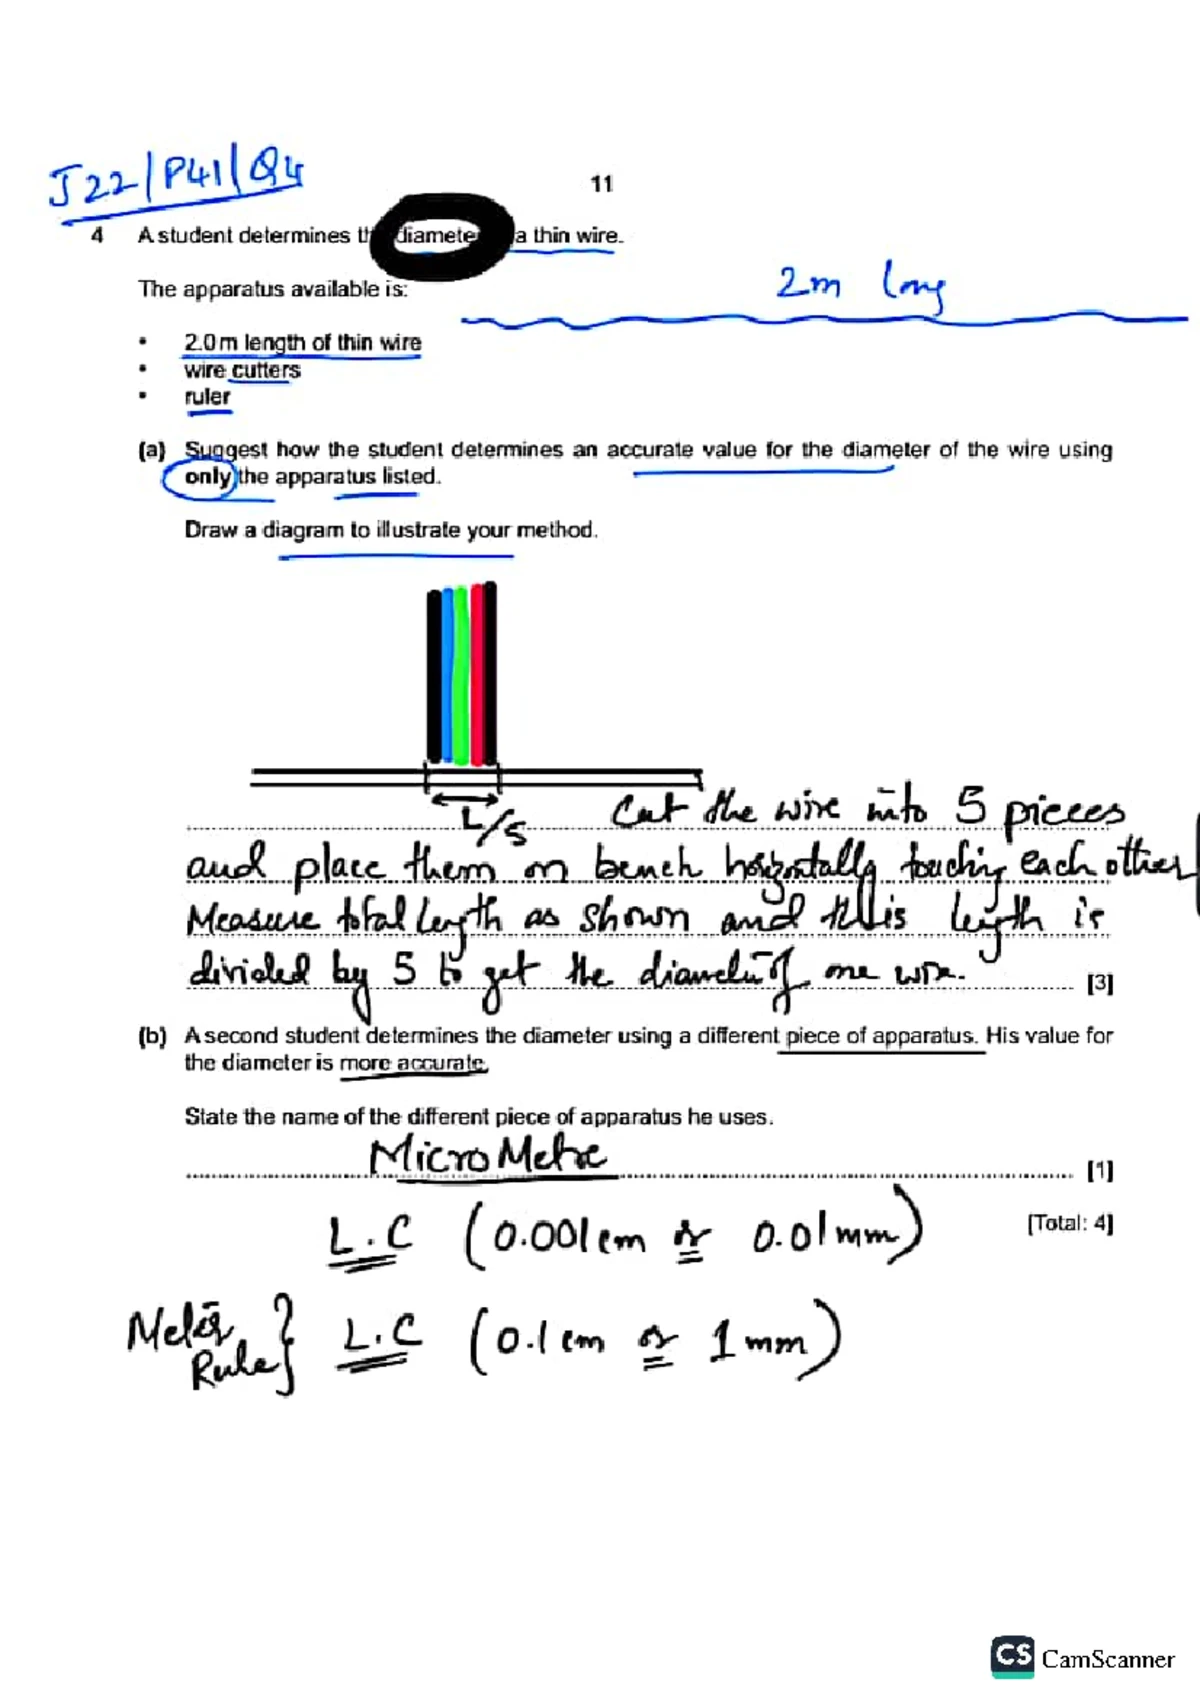 J22/P41/Q4
11
4 A student determines th diameter a thin wire.
The apparatus available is:
2m long
• 2.0m length of thin wire
• wire cutters
• ruler
(a) Suggest how the student determines an accurate value for the diameter of the wire using
only the apparatus listed.
Draw a diagram to illustrate your method.
L/5
Cut the wire into 5 pieces
and place them on bench horizontally touching each other
Measure total length as shown and this length is
divided by 5 to get the diameter of one wire. [3]
(b) A second student determines the diameter using a different piece of apparatus. His value for
the diameter is more accurate.
State the name of the different piece of apparatus he uses.
Micro Metre [1]
L.C (0.001cm or 0.01mm) [Total: 4]
Meter Rule } L.C (0.1cm or 1mm)
CS CamScanner